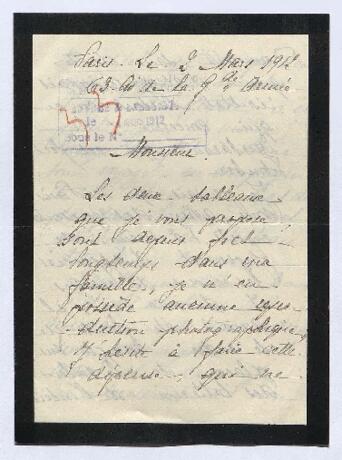 Paris. Le 2 Mars 1912
63 Av de la Gde Armée
le 1912
sous le N
Monsieur.
Les deux tableaux
que je vous propose
sont depuis fort
longtemps dans ma
famille, je n'en
possède aucune repro-
duction photographique,
j'hésite à faire cette
dépense, qui ne